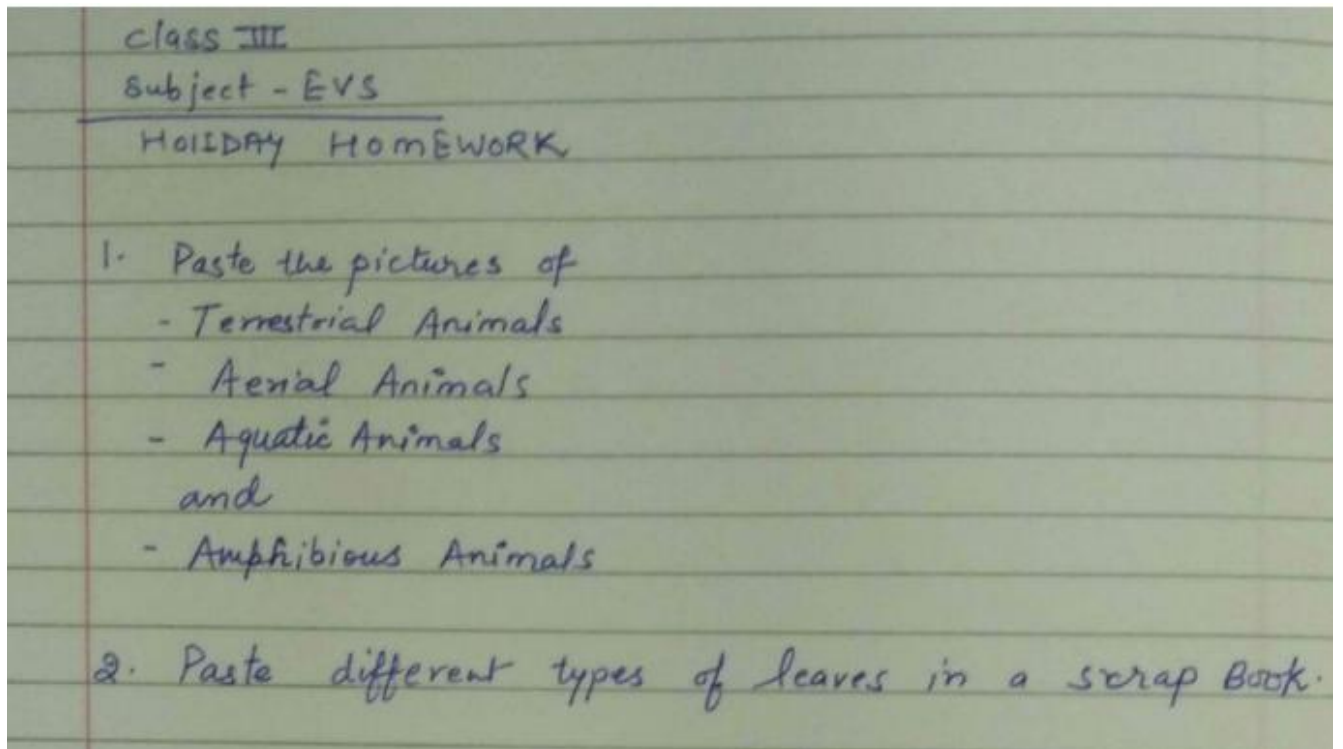 class III
Subject - EVS
HOlIDAY HomEWoRK
1. Paste the pictures of
- Terrestrial Animals
- Aerial Animals
- Aquatic Animals
and
- Amphibious Animals
2. Paste different types of leaves in a scrap Book.